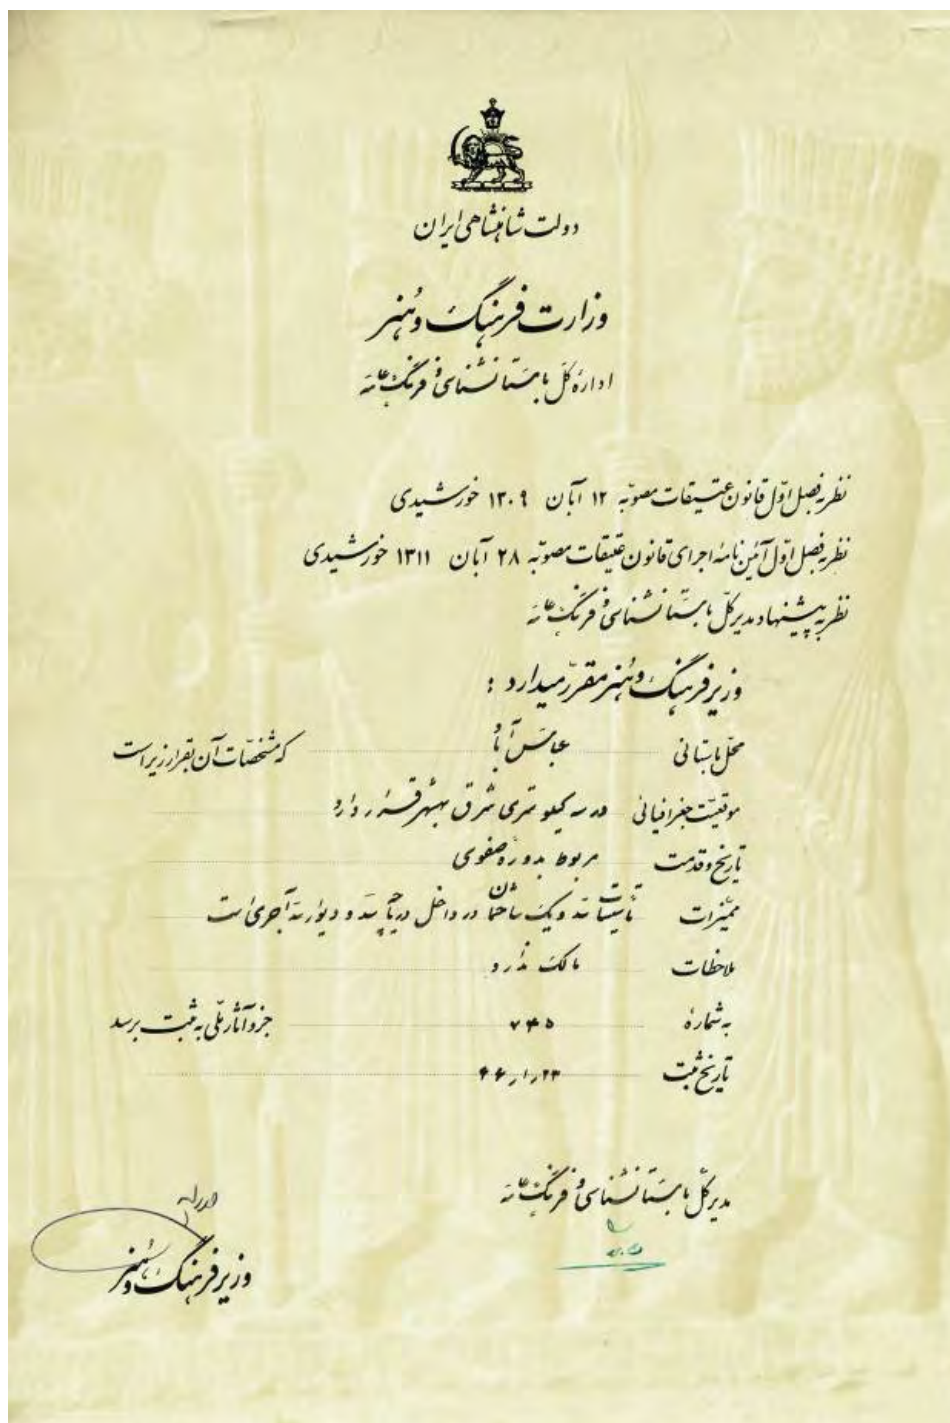 دولت شاهنشاهی ایران
وزارت فرهنگ و هنر
اداره کل باستانشناسی و فرهنگ عامه
نظر به فصل اول قانون عتیقات مصوبه ۱۲ آبان ۱۳۰۹ خورشیدی
نظر به فصل اول آئین نامه اجرای قانون عتیقات مصوبه ۲۸ آبان ۱۳۱۱ خورشیدی
نظر به پیشنهاد مدیر کل باستانشناسی و فرهنگ عامه
وزیر فرهنگ و هنر مقرر میدارد :
محل باستانی عباس آباد که مشخصات آن بقرار زیر است
موقعیت جغرافیائی در سه کیلومتری شرق بهشهر قرار دارد
تاریخ و قدمت مربوط بدوره صفوی
ممیزات تأسیسات سد و یک ساختمان در داخل دریاچه سد و دیواره سد آجری است
ملاحظات مالک ندارد
به شماره ۷۳۵ جزو آثار ملی به ثبت برسد
تاریخ ثبت ۲۳ر۱ر۴۶
مدیر کل باستانشناسی و فرهنگ عامه
وزیر فرهنگ و هنر